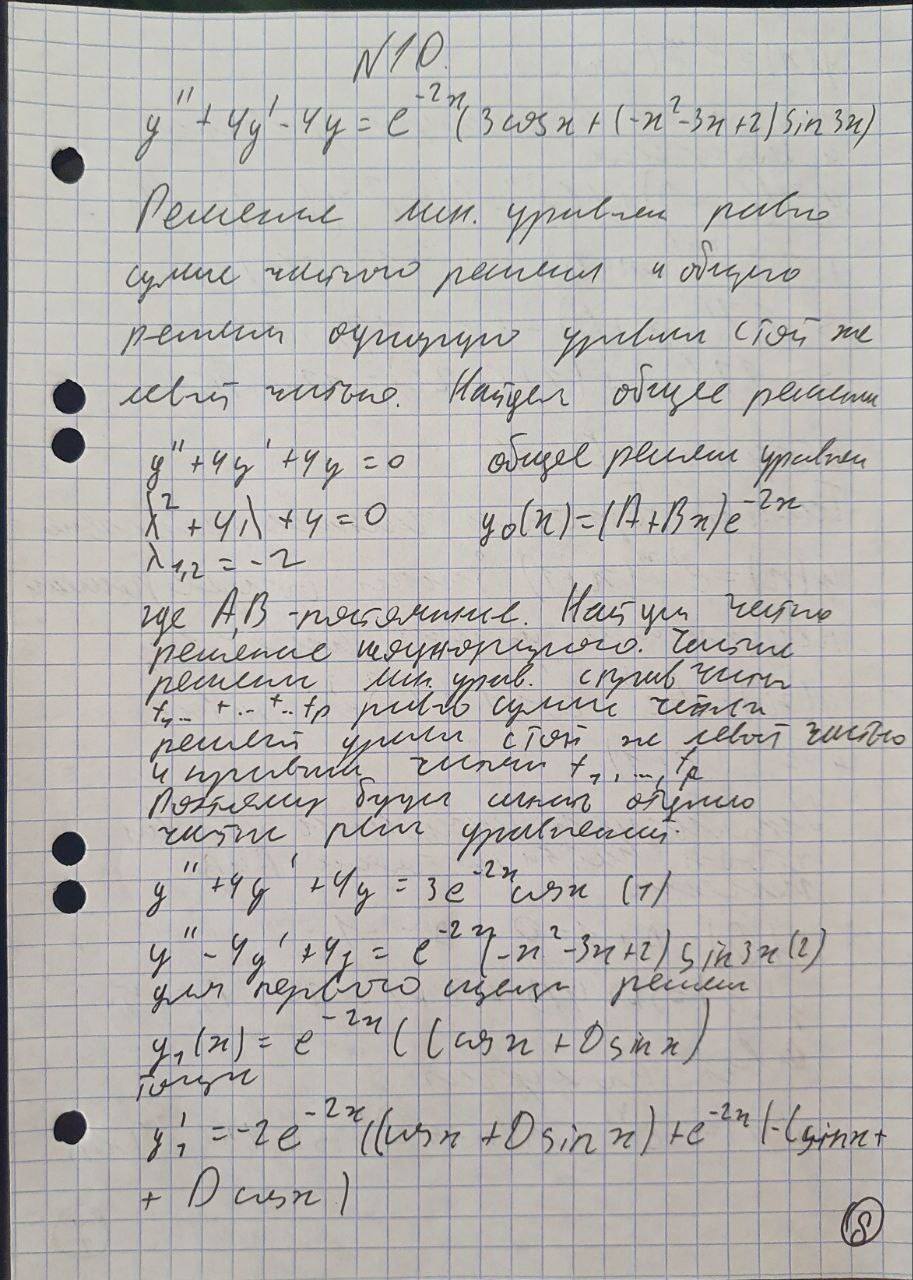 N10.
y'' + 4y' - 4y = e^{-2x}(3cosx + (-x^2-3x+2)sin3x)
Решение лин. уравнен равно
сумме частного решения и общего
решения однородно уравнен с той же
левой частью. Найдем общее решени
y''+4y'+4y=0 общее решени уравнен
λ^2+4λ+4=0 y_0(x)=(A+Bx)e^{-2x}
λ_{1,2}=-2
где A,B - постоянные. Найдем частно
решение неоднородного. Частн
решени лин. урав. с прав част
f_1.. + ... + .. f_p равно сумме частн
решений уравн с той же левой частью
и правыми частями f_1, ..., f_p
Поэтому будем искать отдельно
частн реш уравнений:
y''+4y'+4y=3e^{-2x}cosx (1)
y''-4y'+4y=e^{-2x}(-x^2-3x+2)sin3x(2)
для первого решен
y_1(x)=e^{-2x}(Ccosx+Dsinx)
тогда
y_1'=-2e^{-2x}(Ccosx+Dsinx)+e^{-2x}(-Csinx+
+Dcosx)
8